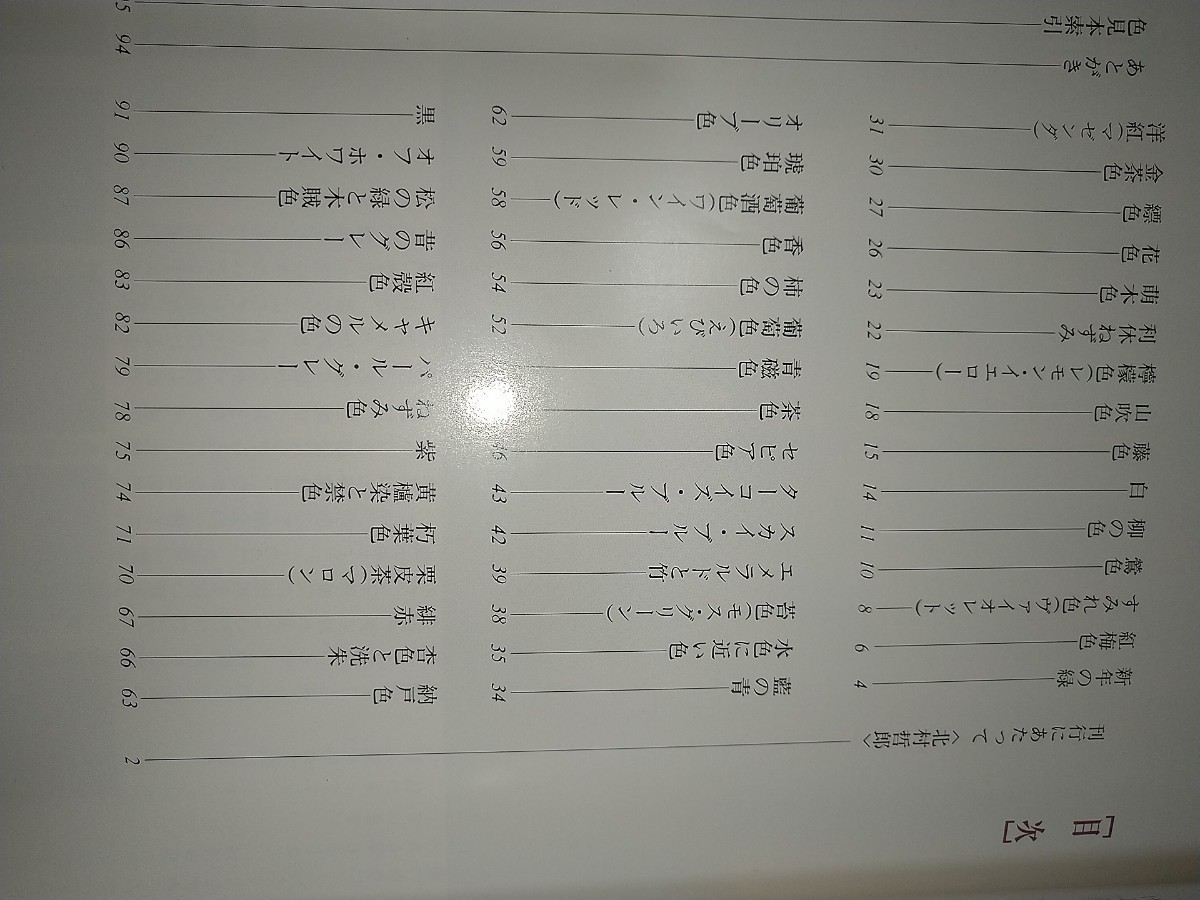 ［目次］
刊行にあたって〈北村哲郎〉 2
新年の緑 4
紅梅色 6
すみれ色(ヴァイオレット) 8
鶯色 10
柳の色 11
白 14
藤色 15
山吹色 18
檸檬色(レモン・イエロー) 19
利休ねずみ 22
萌木色 23
花色 26
縹色 27
金茶色 30
洋紅(マゼンダ) 31
藍の青 34
水色に近い色 35
苔色(モス・グリーン) 38
エメラルドと竹 39
スカイ・ブルー 42
ターコイズ・ブルー 43
セピア色
茶色
青磁色
葡萄色(えびいろ) 52
柿の色 54
香色 56
葡萄酒色(ワイン・レッド) 58
琥珀色 59
オリーブ色 62
納戸色 63
杏色と洗朱 66
緋赤 67
栗皮茶(マロン) 70
朽葉色 71
黄櫨染と禁色 74
紫 75
ねずみ色 78
パール・グレー 79
キャメルの色 82
紅殻色 83
昔のグレー 86
松の緑と木賊色 87
オフ・ホワイト 90
黒 91
あとがき 94
色見本索引